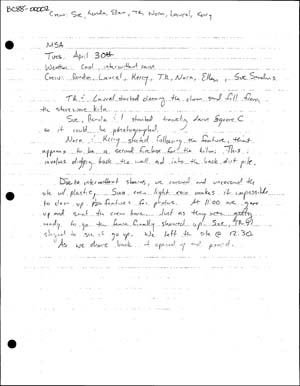 BC88-00002
Crew: Sue, Perdia, Ellen, TR, Nora, Laurel, Kerry
MSA
Tues. April 30th
Weather: Cool, intermittent rain
Crew: Perdia, Laurel, Kerry, TR, Nora, Ellen, Sue Sanders
TR & Laurel started cleaning the down sand fill from
the stoneware kiln.
Sue, Perdia & I started troweling down Square C
so it could be photographed.
Nora & Kerry started following the feature, that
appears to be a second firebox for the kiln. This
involves digging back the wall and into the back dirt pile.
Due to intermittent showers, we covered and uncovered the
site w/ plastic. Since even light rain makes it impossible
to clean up the features for photos. At 11:00 we gave
up and sent the crew home. Just as they were getting
ready to go the fence finally showed up. Sue, TR & I
stayed to see it go up. We left the site @ 12:30
As we drove back it opened up and poured.